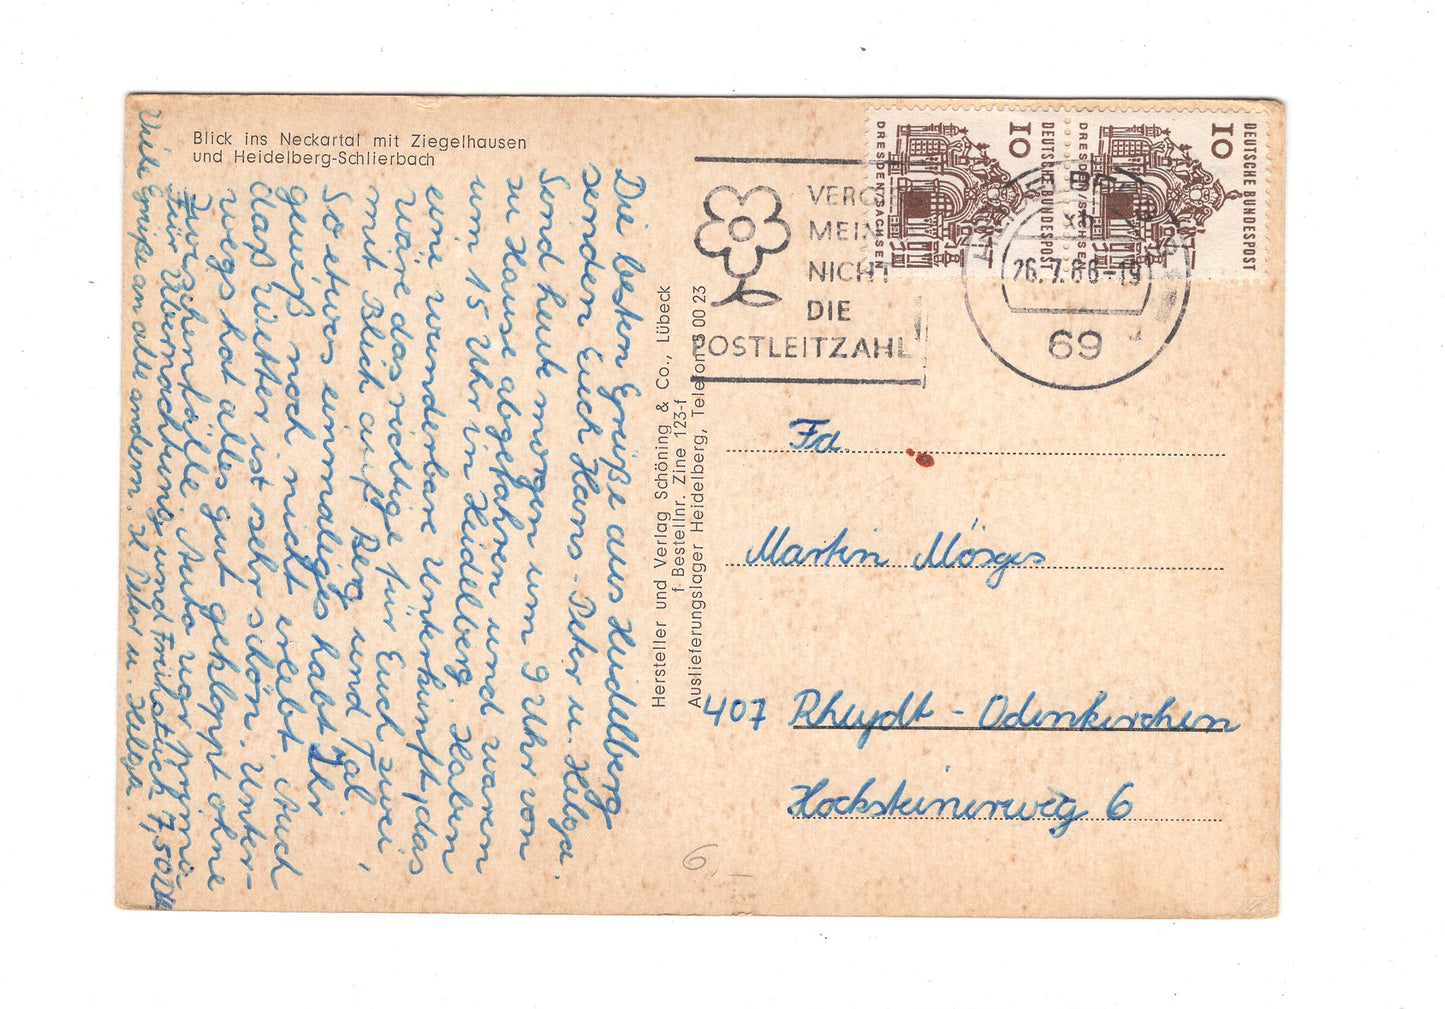 Blick ins Neckartal mit Ziegelhausen
und Heidelberg-Schlierbach
Die besten Grüße aus Heidelberg
senden Euch Hans-Peter u. Helga.
Sind heute morgen um 9 Uhr von
zu Hause abgefahren und waren
um 15 Uhr in Heidelberg. Haben
eine wunderbare Unterkunft, das
wäre das richtige für Euch zwei,
mit Blick auf Berg und Tal,
So etwas einmaliges habt Ihr
gewiß noch nicht erlebt. Auch
das Wetter ist sehr schön. Unter-
wegs hat alles gut geklappt ohne
Zwischenfälle. Auto war prima
Für Übernachtung und Frühstück 7,50 DM
Viele Grüße an alle andern. H. Peter u. Helga.
Hersteller und Verlag Schöning & Co., Lübeck
f Bestellnr. Zine 123-f
Auslieferungslager Heidelberg, Telefon 3 00 23
VERGISS
MEIN
NICHT
DIE
POSTLEITZAHL
HEIDELBERG
26.7.66-19
69
10
DEUTSCHE BUNDESPOST
DRESDEN/SACHSEN
10
DEUTSCHE BUNDESPOST
DRESDEN/SACHSEN
Fa.
Martin Mösges
407 Rheydt - Odenkirchen
Hocksteinerweg 6
6,-